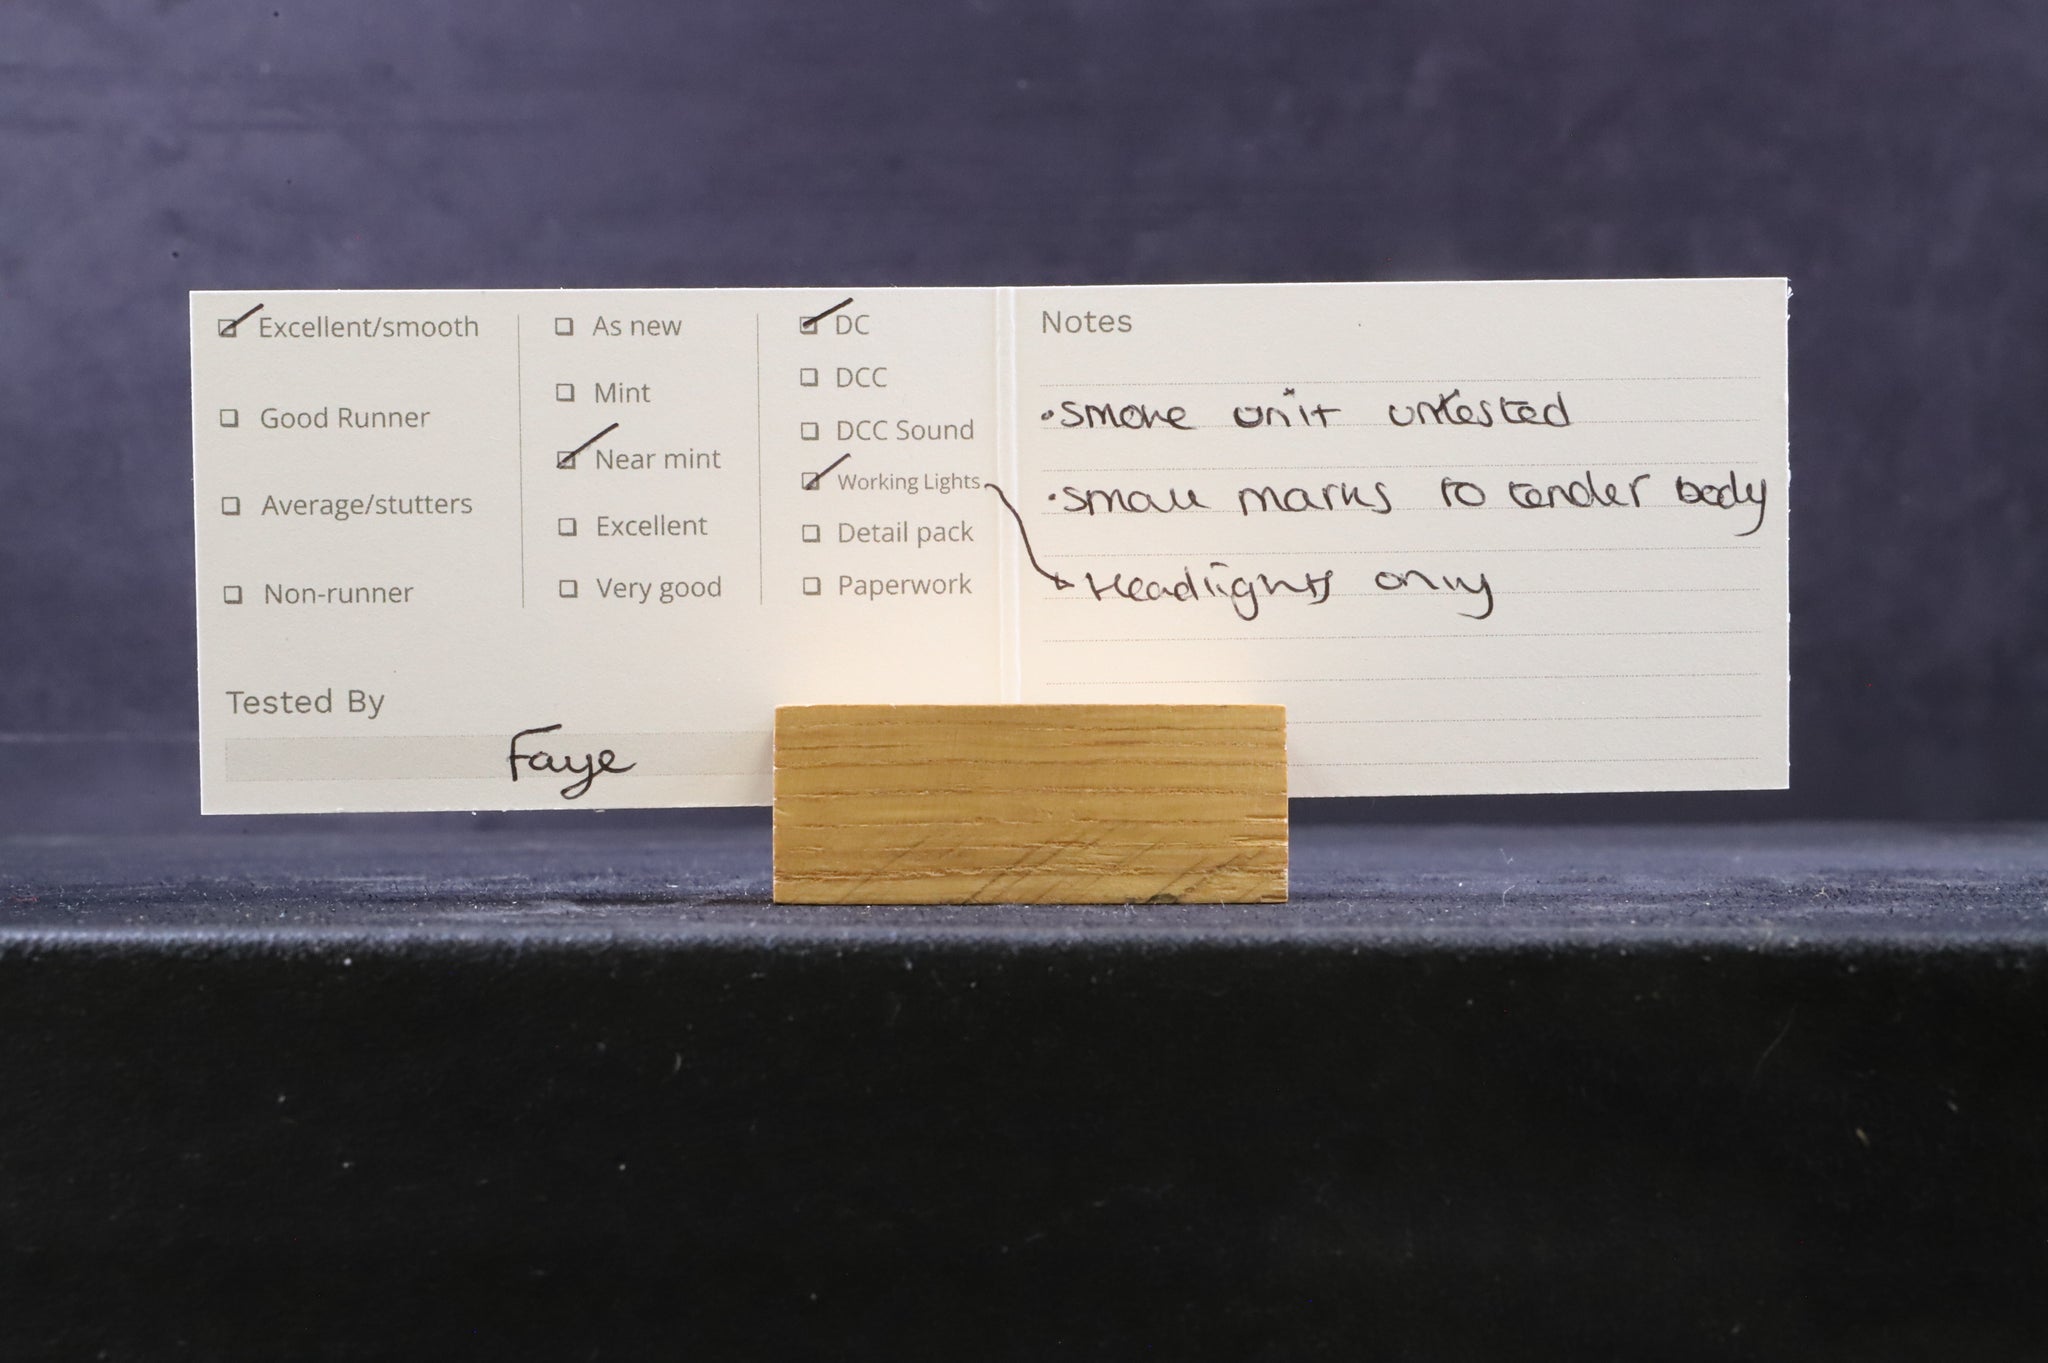 Excellent/smooth
Good Runner
Average/stutters
Non-runner
As new
Mint
Near mint
Excellent
Very good
DC
DCC
DCC Sound
Working Lights
Detail pack
Paperwork
Tested By
Faye
Notes
• smoke unit untested
• small marks to tender body
Headlights only